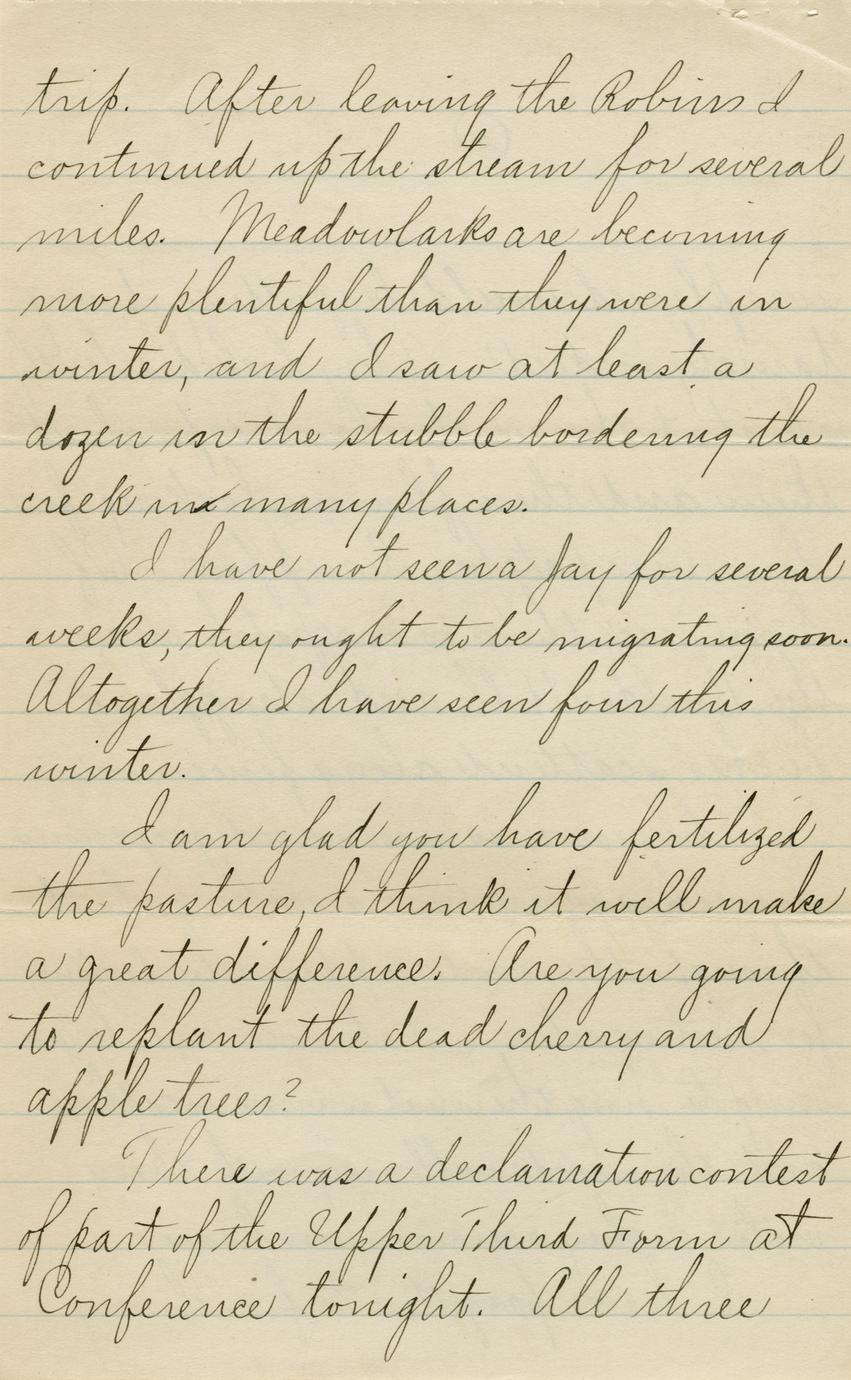 trip. After leaving the Robins I
continued up the stream for several
miles. Meadowlarks are becoming
more plentiful than they were in
winter, and I saw at least a
dozen in the stubble bordering the
creek in many places.
I have not seen a Jay for several
weeks, they ought to be migrating soon.
Altogether I have seen four this
winter.
I am glad you have fertilized
the pasture, I think it will make
a great difference. Are you going
to replant the dead cherry and
apple trees?
There was a declamation contest
of part of the Upper Third Form at
Conference tonight. All three